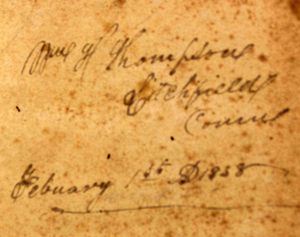 Wm H Thompson
Litchfield
Conne
Febuary 1st D 1858